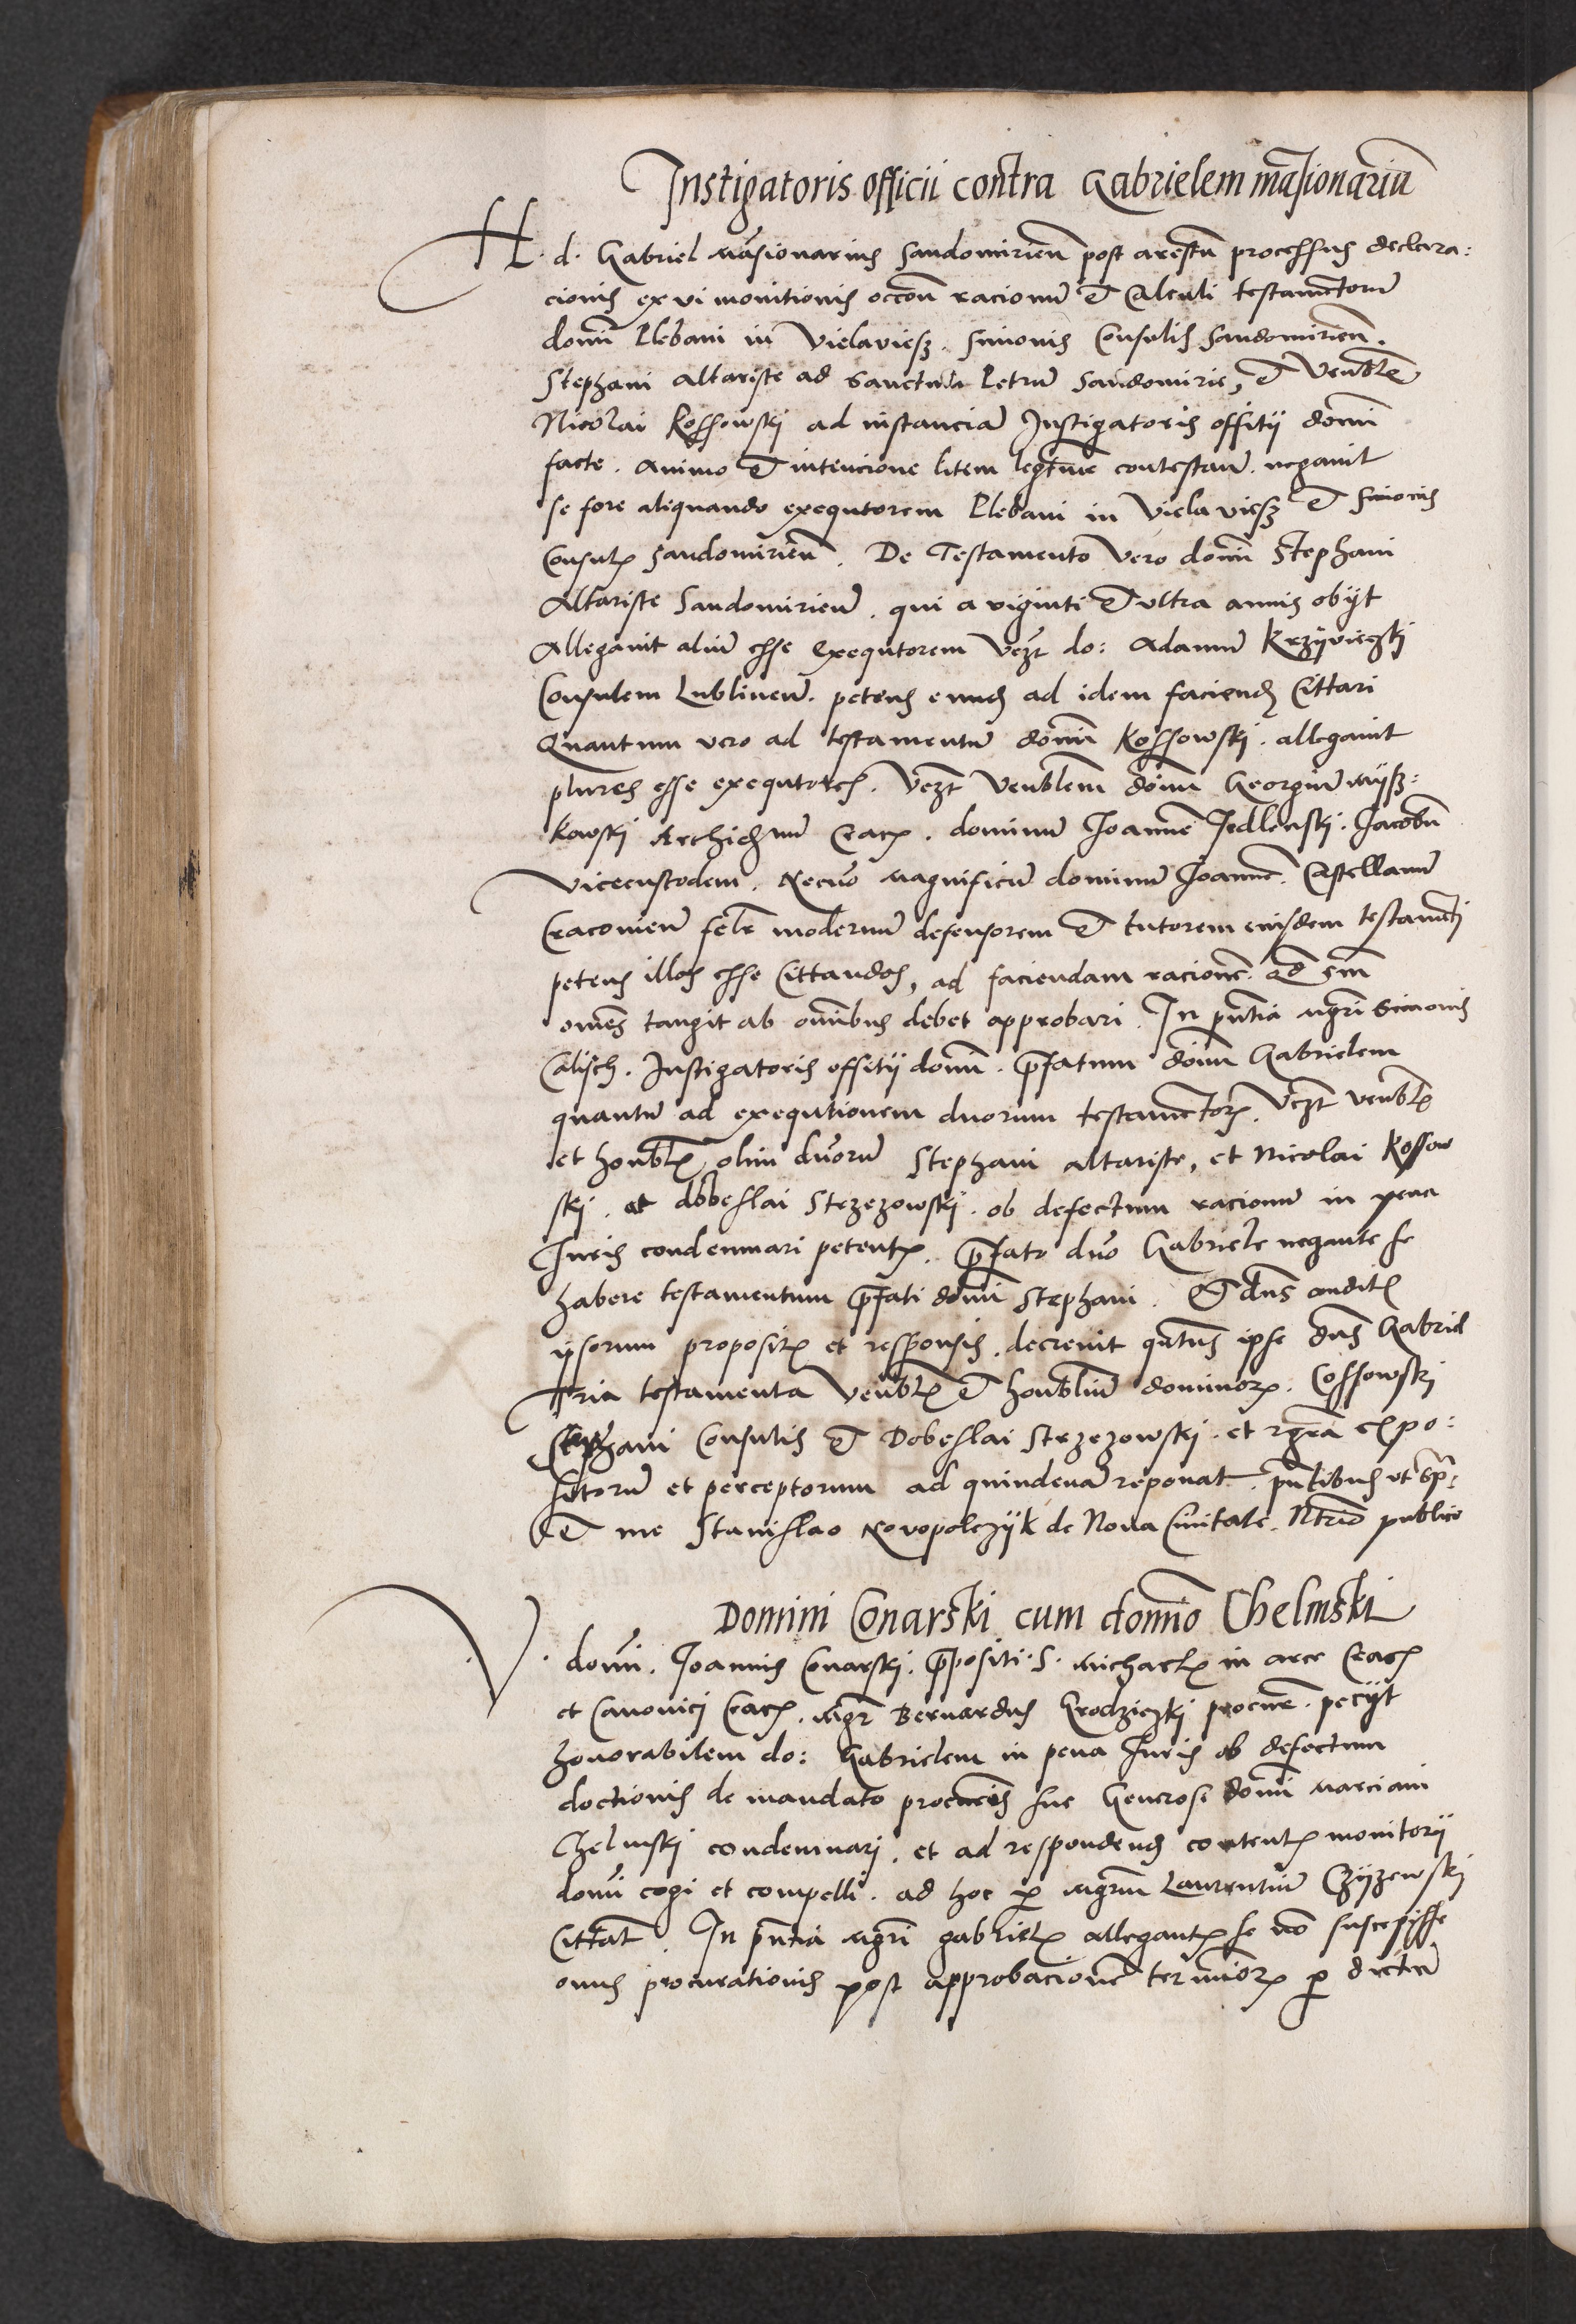 Instigatoris officii contra Gabrielem mansionariu
H. d. Gabriel mansionarius Sandomirien post arestum processus declara:
cionis ex vi monitionis occon racionu et calculi testamentoru
domi Plebani in Vielaviess. Simonis Consulis Sandomirien.
Stephani altariste ad Sanctum Petru Sandomirie, et Venblis
Nicolai Kossowski ad instancia Instigatoris offitij domi
facte. animo et intencione litem legtime contestan. negavit
se fore aliquando exequtorem Plebani in Vielaviess et Simonis
Consulis Sandomirien. De Testamento vero domi Stephani
Altariste Sandomirien. qui a viginti et ultra annis obijt
Allegavit aliu esse exequtorem vezt do: Adamum Krzijviczski
Consulem Lublinen. petens eund ad idem faciend cittari
Quantum vero ad testamentu domi Kossowski. allegavit
plures esse exequtores. vezt Venblem domu Georgiu mijss:
kowski Archidnum Crac. dominu Joanne Jedlenski. Jacobu
Vicecustodem. Necno magnificu dominu Joanne. Castellanu
Cracovien felr modernu defensorem et tutorem eiusdem testamti
petens illos esse cittandos, ad faciendam racione. qd sm
omes tangit ab omibus debet approbari. In pntia mgri Simonis
Calisch. Instigatoris offitij domi. prefatum domu Gabrielem
quantu ad exequtionem duorum testamentor. vezt venbl
et honbl olim duoru Stephani altariste, et Nicolai Kossow
ski. et dobeslai Strzezowski. ob defectum racionu in pena
Juris condemnari petent. prefato duo Gabriele negante se
habere testamentum prefati domi Stephani. Et dns audit
ipsorum proposit et responsis. decrevit qutus ipse dns Gabriel
tria testamenta venbl et honbliu dominor. Cossowski
Stephani Consulis et Dobeslai Strzezowski. et rgra expo:
sitoru et perceptorum ad quindena reponat. pntibus ut spr.
Et me Stanislao Novopolczijk de Nova Civitate. Ntrio publico
Domini Conarski cum domino Chelmski
V. domi. Joannis Conarski. prepositi. S. Michael in arce Crac
et Canonici Crac. mgr Bernardus Grodziczki procur. pecijt
honorabilem do: Gabrielem in pena Juris ob defectum
doctionis de mandato procuris sue Generosi domi Marciani
Chelmski condemnari. et ad respondend content monitorij
domi cogi et compelli. ad hoc per mgrum Laurentiu Czijzewski
cittat. In pntia mgri gabriel allegant se no suscepisse
onus procurationis post approbacione terminor per dictu